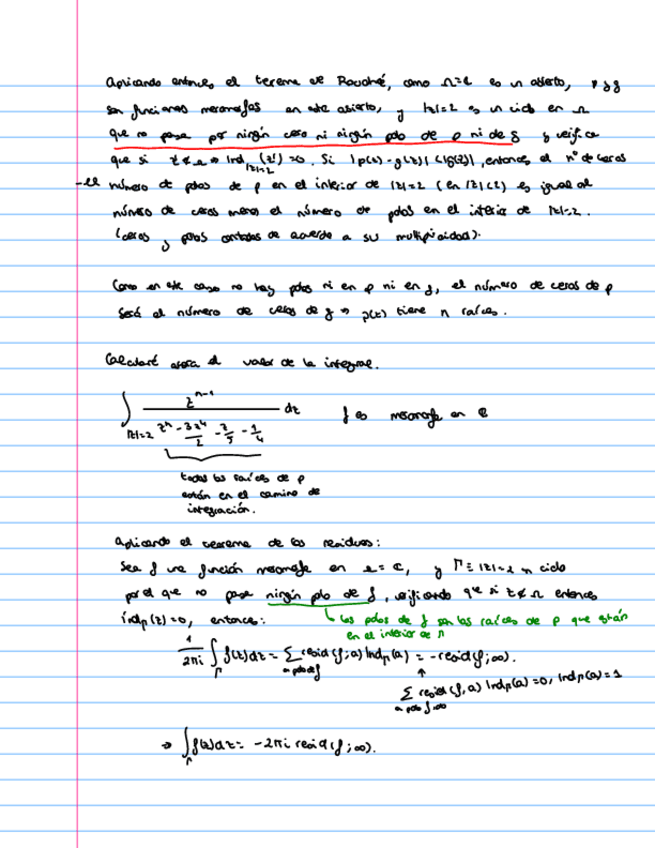 Aplicando entonces el teorema de Rouché, como Ω=ℂ es un abierto, p y g
son funciones meromorfas en este abierto, y |z|=2 es un ciclo en Ω
que no pasa por ningún cero ni ningún polo de p ni de g y verifica
que si z∉Ω ⇒ Ind|z|=2 (z)=0. Si |p(z)-g(z)|<|g(z)|, entonces el nº de ceros
-el número de polos de p en el interior de |z|=2 (en |z|<2) es igual al
número de ceros menos el número de polos en el interior de |z|=2.
(ceros y polos contados de acuerdo a su multiplicidad).
Como en este caso no hay polos ni en p ni en g, el número de ceros de p
será el número de ceros de g ⇒ p(z) tiene n raíces.
Calcularé ahora el valor de la integral.
∫|z|=2 z^(n-1) / (z^n - 3z^4/2 - z/5 - 1/4) dz f es meromorfa en ℂ
todas las raíces de p
están en el camino de
integración.
Aplicando el teorema de los residuos:
Sea f una función meromorfa en Ω=ℂ, y Γ≡|z|=2 un ciclo
por el que no pasa ningún polo de f, verificando que si z∉Ω entonces
indΓ(z)=0, entonces: los polos de f son las raíces de p que están
en el interior de Γ
1/2πi ∫Γ f(z)dz = Σ a polo de f resid(f;a) IndΓ(a) = -resid(f;∞).
↑
Σ a polo f resid(f,a) IndΓ(a)=0, IndΓ(a)=1
⇒ ∫Γ f(z)dz = -2πi resid(f;∞).